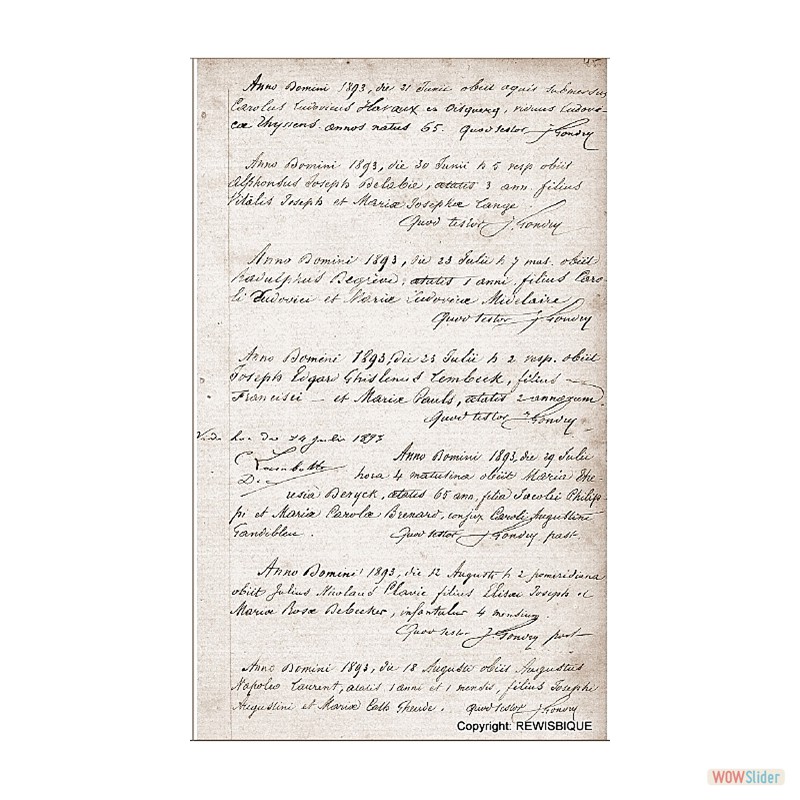 Anno Domini 1893, die 21 Junii obiit aquis submersus
Carolus Ludovicus Havaux ex Oisquercq, viduus Ludovi-
cæ Thyssens annos natus 65. Quod testor J. Gondry
Anno Domini 1893, die 30 Junii h 5 vesp obiit
Alphonsus Joseph Delabie, ætatis 3 ann. filius
Vitalis Joseph et Mariæ Josephæ Cange.
Quod testor J. Gondry
Anno Domini 1893, die 23 Julii h 7 mat. obiit
Radulphus Degrève, ætatis 1 anni, filius Caro-
li Ludovici et Mariæ Ludovicæ Midelaire
Quod testor J. Gondry
Anno Domini 1893, die 23 Julii h 2 vesp. obiit
Joseph Edgard Ghislenus Lembeek, filius
Francisci — et Mariæ Pauls, ætatis 2 annorum.
Quod testor J. Gondry
hac die 24 Julii 1893
Anno Domini 1893, die 29 Julii
hora 4 matutina obiit Maria The-
resia Deryck, ætatis 65 ann, filia Jacobi Philip-
pi et Mariæ Carolæ Brenard, conjux Caroli Augustini
Gandibleu. Quod testor J. Gondry past.
Anno Domini 1893, die 12 Augusti h 2 pomeridiana
obiit Julius Nicolaus Clavie filius Elisæi Joseph et
Mariæ Rosæ Debecker, infantulus 4 mensium.
Quod testor J. Gondry past.
Anno Domini 1893, die 18 Augusti obiit Augustus
Napoleo Laurent, ætatis 1 anni et 1 mensis, filius Josephi
Augustini et Mariæ Cath Gheude. Quod testor J. Gondry
Copyright: REWISBIQUE
WOWSlider